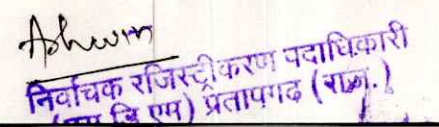 Ashwin
निर्वाचक रजिस्ट्रीकरण पदाधिकारी
(एस डि एम) प्रतापगढ (राज.)